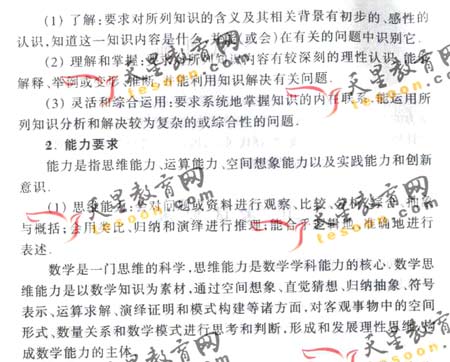 (1) 了解:要求对所列知识的含义及其相关背景有初步的、感性的
认识,知道这一知识内容是什么,并能(或会)在有关的问题中识别它.
(2) 理解和掌握:要求对所列知识内容有较深刻的理性认识,能够
解释、举例或变形、推断,并能利用知识解决有关问题.
(3) 灵活和综合运用:要求系统地掌握知识的内在联系,能运用所
列知识分析和解决较为复杂的或综合性的问题.
2. 能力要求
能力是指思维能力、运算能力、空间想象能力以及实践能力和创新
意识.
(1) 思维能力:会对问题或资料进行观察、比较、分析、综合、抽象
与概括;会用类比、归纳和演绎进行推理;能合乎逻辑地、准确地进行
表述.
数学是一门思维的科学,思维能力是数学学科能力的核心.数学思
维能力是以数学知识为素材,通过空间想象、直觉猜想、归纳抽象、符号
表示、运算求解、演绎证明和模式构建等诸方面,对客观事物中的空间
形式、数量关系和数学模式进行思考和判断,形成和发展理性思维,构
成数学能力的主体.
天星教育网
tesoon.com
天星教育网
tesoon.com
天星教育网
tesoon.com
天星教育网
tesoon.com
天星教育网
天星教育网